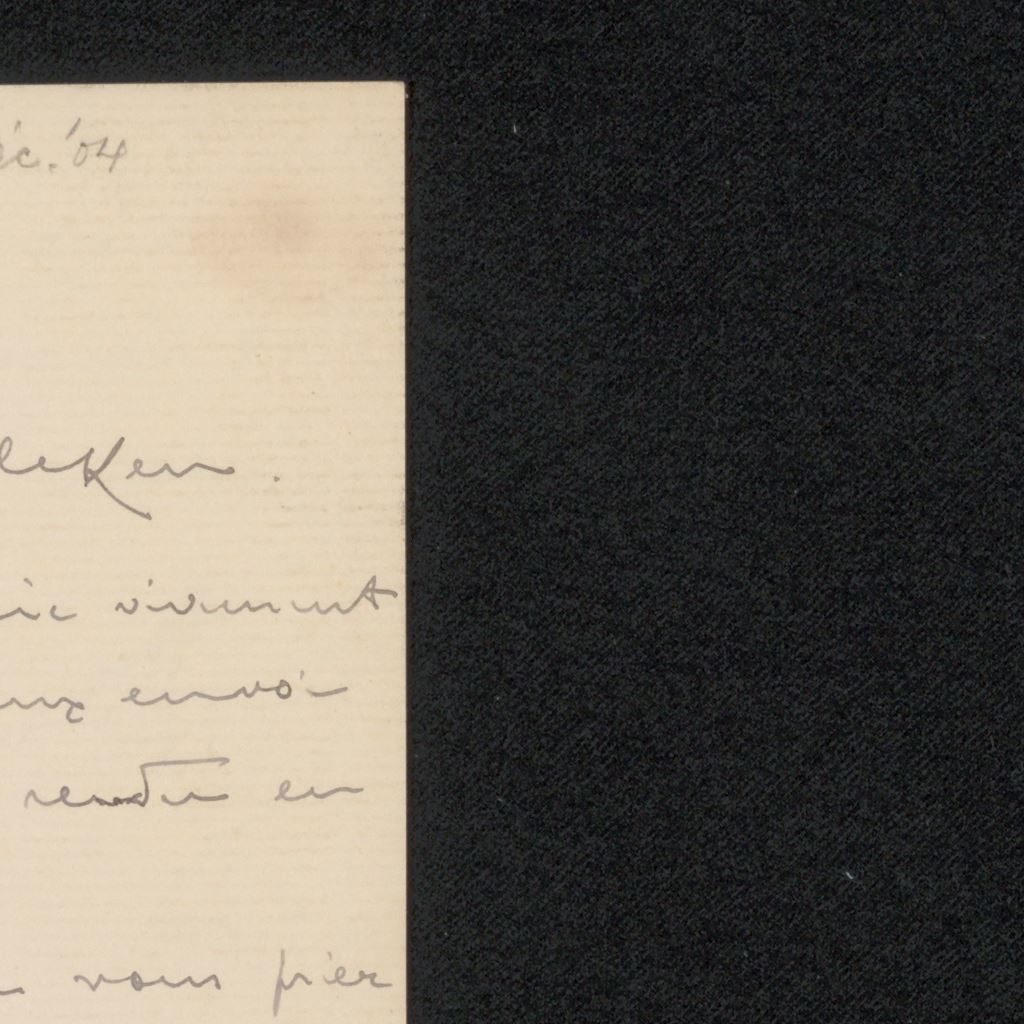 éc. '04
leken.
ie vivement
aux envoi
rendu en
vous prier